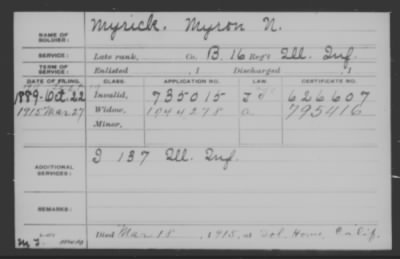 NAME OF SOLDIER: Myrick, Myron N.
SERVICE: Late rank, Co. B, 16 Reg't Ill. Inf.
TERM OF SERVICE: Enlisted , 1 Discharged , 1
DATE OF FILING. CLASS. APPLICATION NO. LAW. CERTIFICATE NO.
1889-Oct. 22 Invalid, 735015 626607
1915 Mar 27 Widow, 1044278 795416
Minor,
ADDITIONAL SERVICES: D 137 Ill. Inf.
REMARKS:
Died Mar 18, 1915, at Sol. Home, Calif.